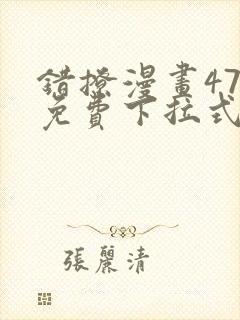 錯撩漫畫47
免費下拉式
張麗清